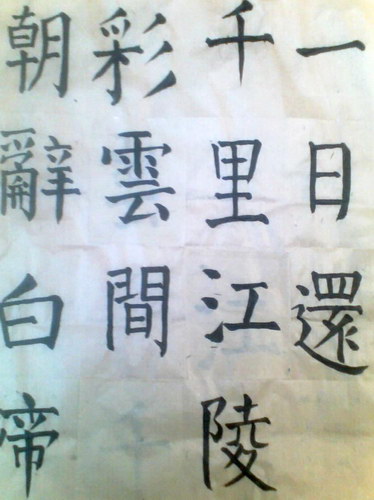 朝辭白帝
彩雲間
千里江陵
一日還